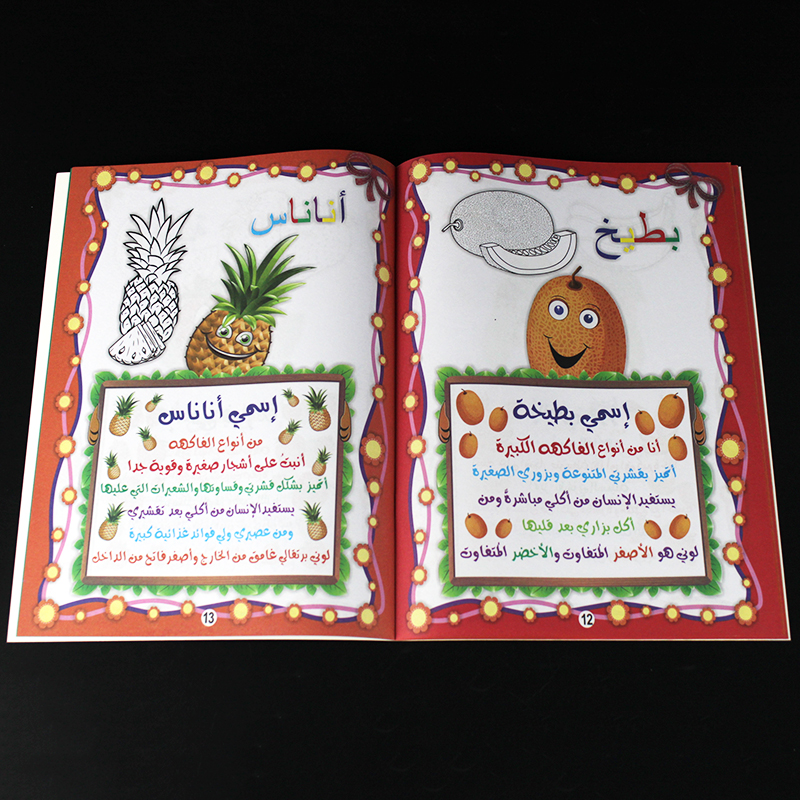 بطيخ
إسمي بطيخة
أنا من أنواع الفاكهه الكبيرة
أتميز بقشرتي المتنوعة وبزوري الصغيرة
يستفيد الإنسان من أكلي مباشرةً ومن
أكل بزاري بعد قليها
لوني هو الأصفر المتفاوت والأخضر المتفاوت
12
أناناس
إسمي أناناس
من أنواع الفاكهه
أنبتُ على أشجار صغيرة وقوية جدا
أتميز بشكل قشرتي وقساوتها والشعيرات التي عليها
يستفيد الإنسان من أكلي بعد تقشيري
ومن عصيري ولي فوائد غذائية كبيرة
لوني برتقالي غامق من الخارج وأصفر فاتح من الداخل
13